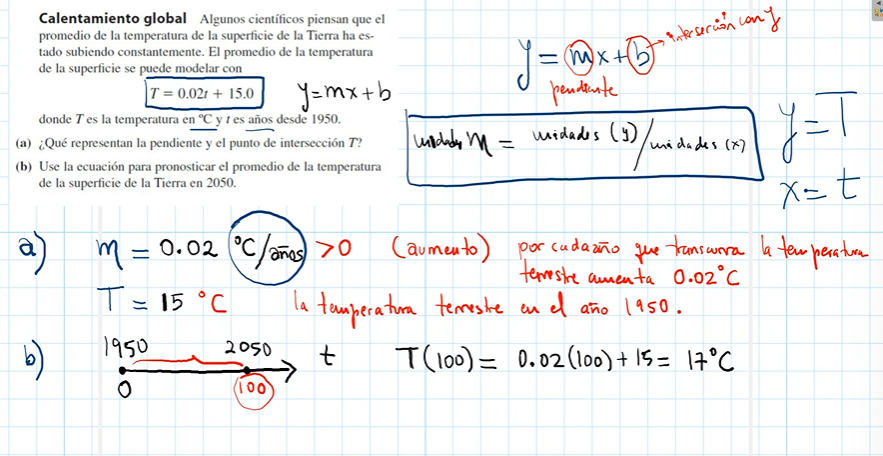 Calentamiento global Algunos científicos piensan que el
promedio de la temperatura de la superficie de la Tierra ha es-
tado subiendo constantemente. El promedio de la temperatura
de la superficie se puede modelar con
T = 0.02t + 15.0
y=mx+b
donde T es la temperatura en °C y t es años desde 1950.
(a) ¿Qué representan la pendiente y el punto de intersección T?
(b) Use la ecuación para pronosticar el promedio de la temperatura
de la superficie de la Tierra en 2050.
y = mx+b → intersección con y
pendiente
unidades m = unidades (y)/unidades (x)
y = T
x = t
a) m = 0.02 °C/años >0 (aumento) por cada año que transcurra la temperatura
terrestre aumenta 0.02°C
T = 15 °C la temperatura terrestre en el año 1950.
b) 1950 2050 t T(100) = 0.02(100)+15 = 17°C
0 100